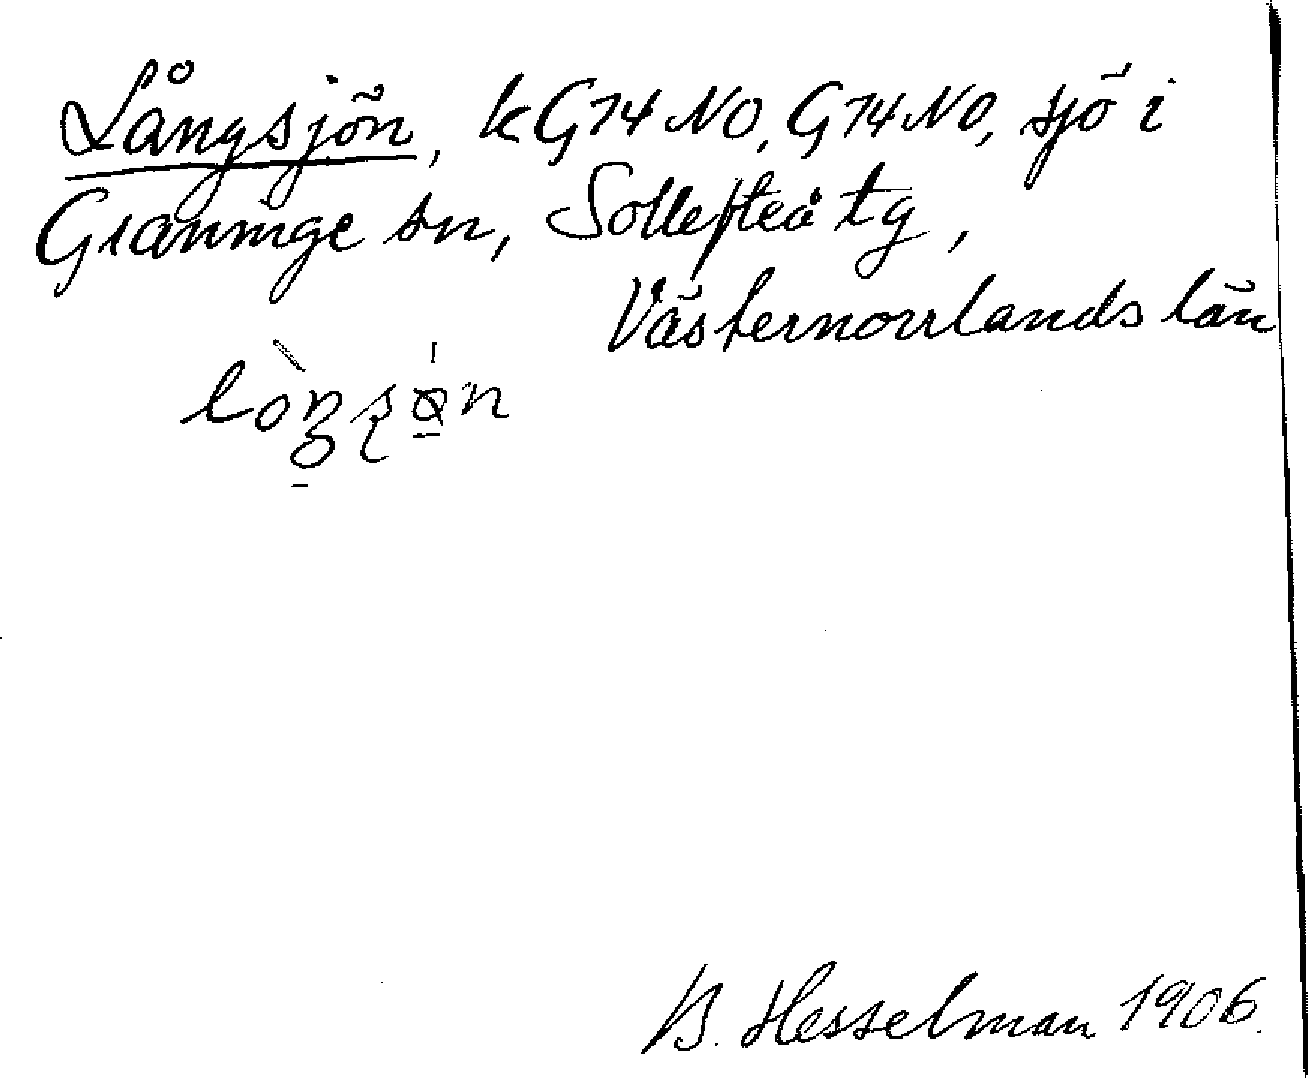 Långsjön, kG74NO, G74NO, sjö i
Graninge sn, Sollefteå tg,
Västernorrlands län
B. Hesselman 1906.